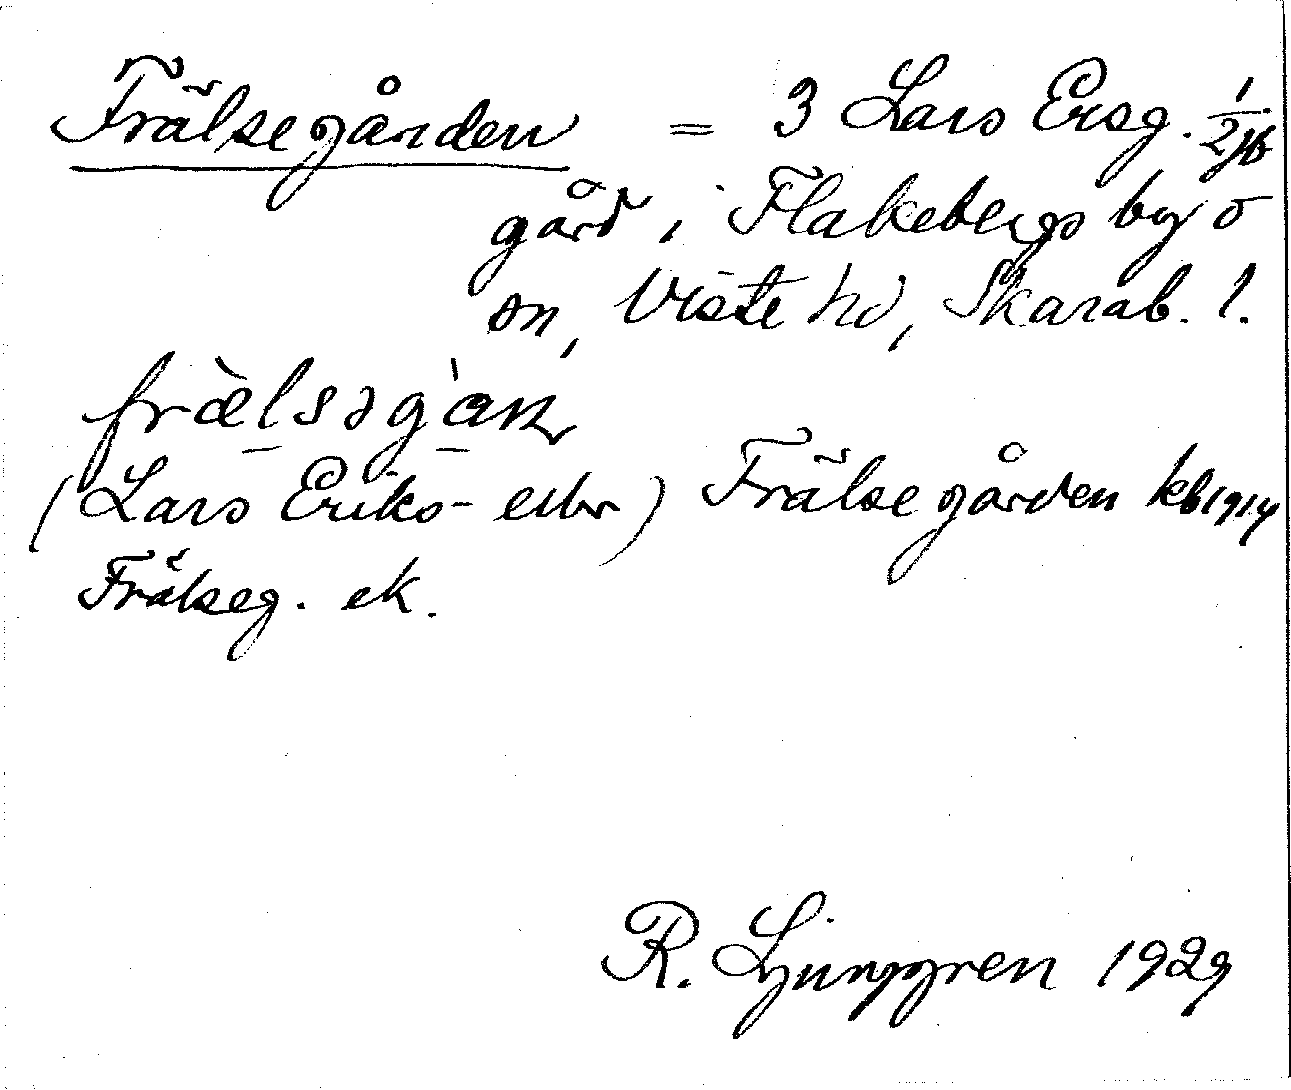 Frälsegården = 3 Lars Ersg. 1/2 jb
gård i Flakebergs by o
sn, Viste hd, Skarab. l.
fræ̀lsəgàn
(Lars Eriks- eller) Frälsegården kb 1914
Frälseg. ek.
R. Ljunggren 1929